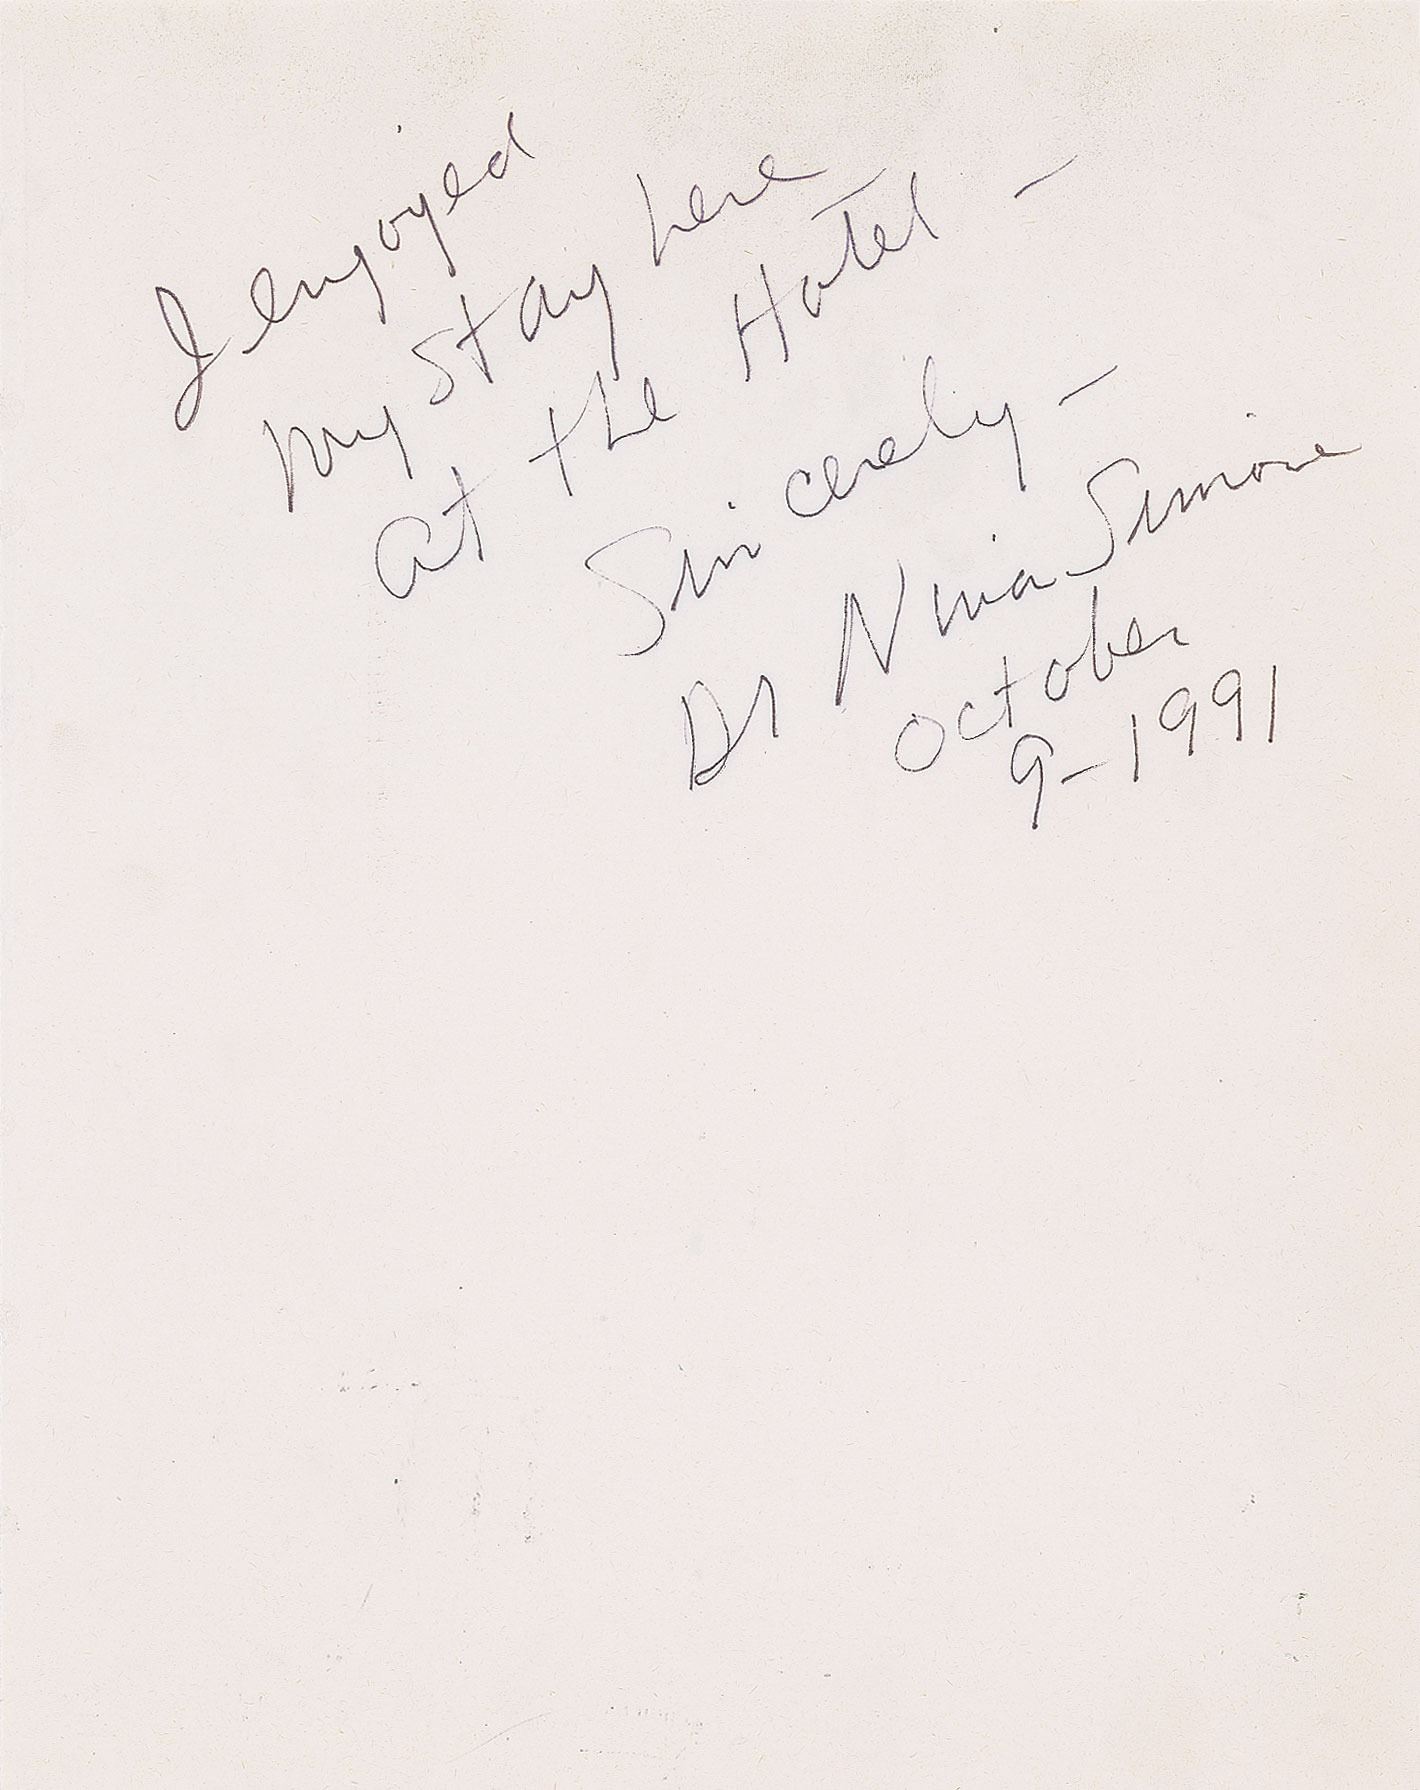 I enjoyed
my stay here
at the Hotel —
Sincerely —
Dr Nina Simone
October
9-1991